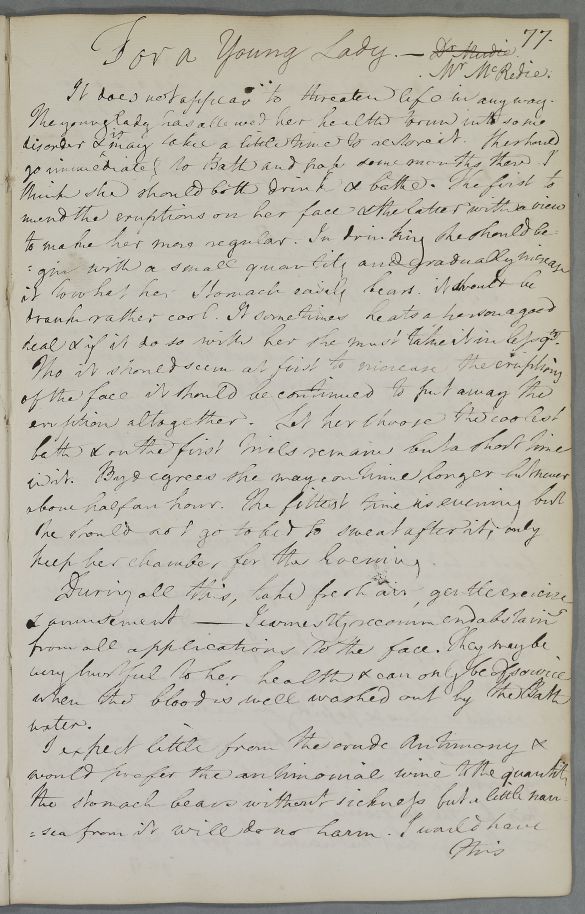 77.
For a Young Lady. — Dr Mudie
Mr McRedie.
It does not appear to threaten life in any way.
The young Lady has allowed her health to run into some
disorder & it may take a little time to restore it. She should
go immediately to Bath and pass some months there I
think she should both drink & bathe. The first to
mend the eruptions on her face & the latter with a view
to make her more regular. In drinking she should be-
:gin with a small quantity and gradually increase
it to what her Stomach easily bears. it should be
drank rather cool. It sometimes heats a person a good
deal & if it do so with her she must take it in less qty.
Tho it should seem at first to increase the eruptions
of the face it should be continued to put away the
eruption altogether. Let her choose the coolest
bath & on the first trials remain but a short time
in it. By degrees she may continue longer but never
above half an hour. The fittest time is evening but
she should not go to bed to sweat after it; only
keep her chamber for the Evening.
During all this, take fresh air, gentle exercise
& amusement — I earnestly recommend abstaing
from all applications to the face. They may be
very hurtful to her health & can only be of service
when the blood is well washed out by the Bath
water.
I expect little from the crude Antimony &
would prefer the antimonial wine to the quantity
the stomach bears without sickness but a little nau-
=sea from it will do no harm. I would have
This